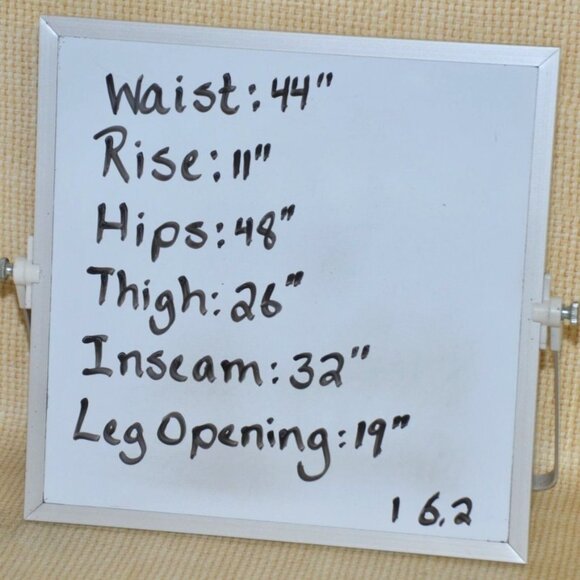 Waist: 44"
Rise: 11"
Hips: 48"
Thigh: 26"
Inseam: 32"
Leg Opening: 19"
1 6.2